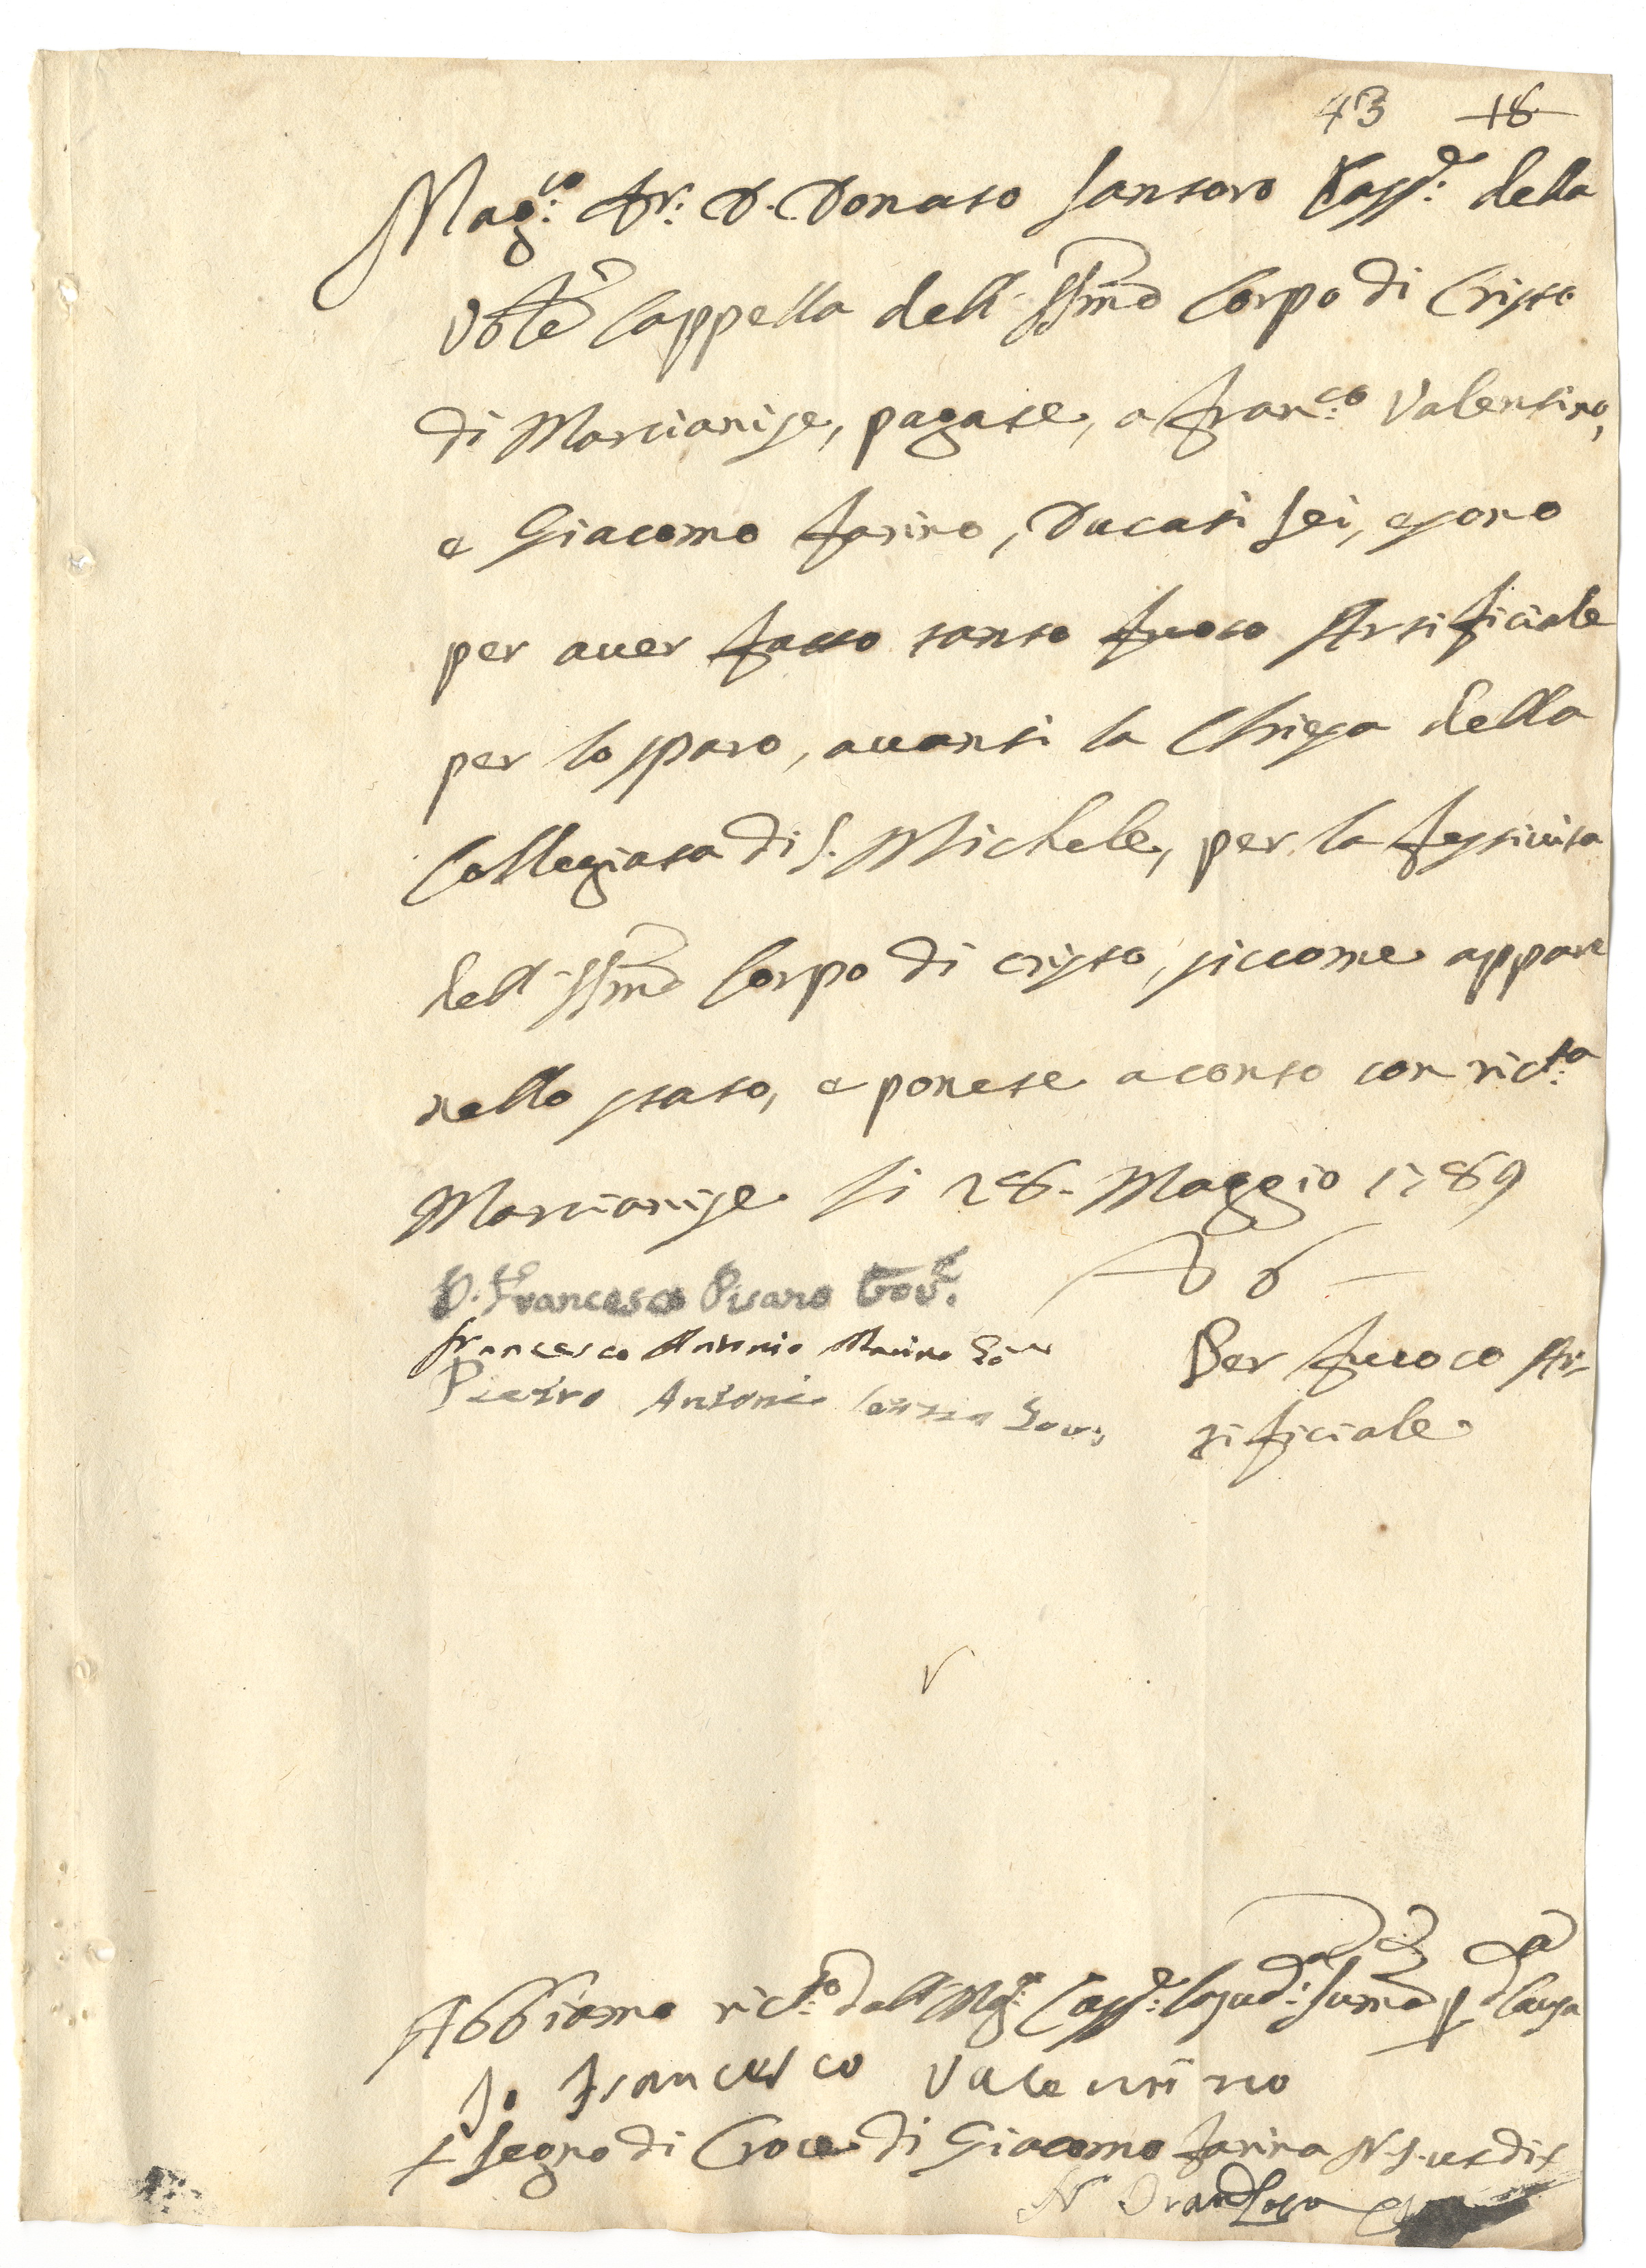 43 18
Mag:co Dr: D. Donato Santoro Cass:e della
Vble Cappella dell' SSmo Corpo di Cristo
di Marcianise, pagate, a Fran:co Valentino,
e Giacomo Farina, Ducati sei, e sono
per auer fatto tanto fuoco Artificiale
per lo sparo, auanti la Chiesa della
Collegiata di S. Michele, per la festiuita
dell' SSmo Corpo di cristo, siccome appare
nello stato, e ponete a conto con rict:a
Marcianise li 28. Maggio 1789
D 6 –
D. Francesco Pisano Gou:e
Francesco Antonio Gou:
Pietro Antonio Gou:
Per fuoco Ar-
tificiale
Abbiamo rict:o dall' Mag:co Cass:e la sud:a summa p da: causa
Io Francesco Valentino
+ Segno di Croce di Giacomo Farina N. S. ut dix